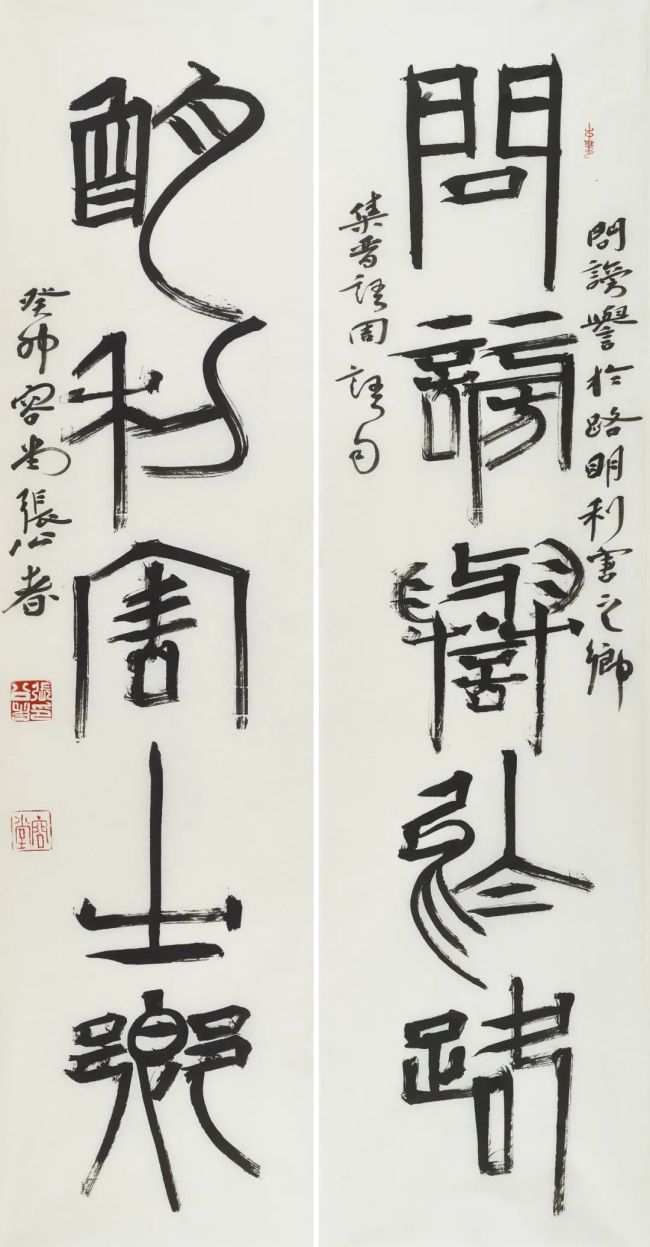 問謗譽於路明利害之鄉
問謗譽於路
集晉語周語句
明利害之鄉
癸卯容堂張公者
容堂